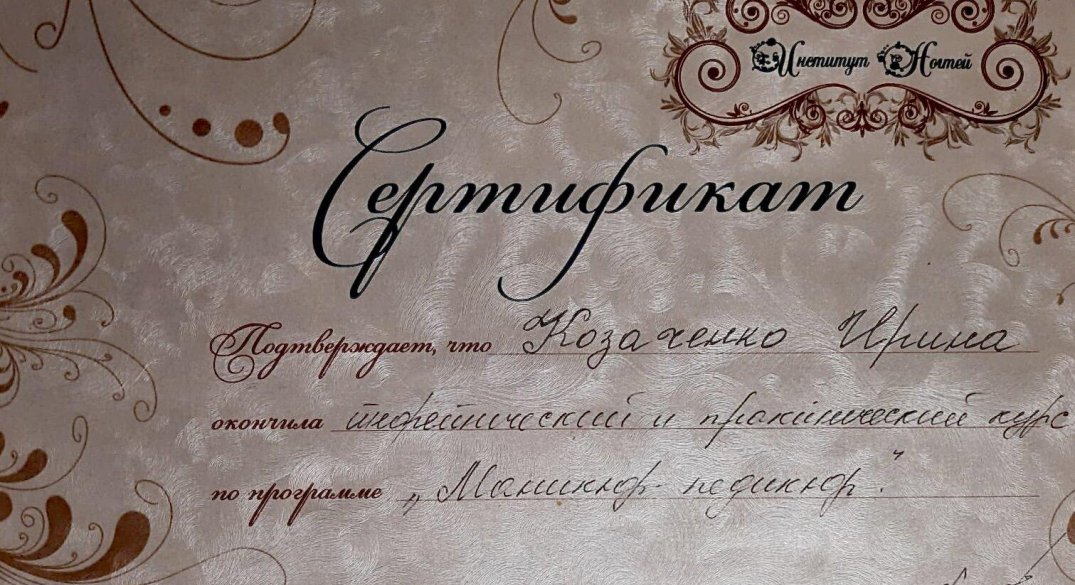 Институт Ногтей
Сертификат
Подтверждает, что Козаченко Ирина
окончила теоретический и практический курс
по программе „Маникюр-педикюр."